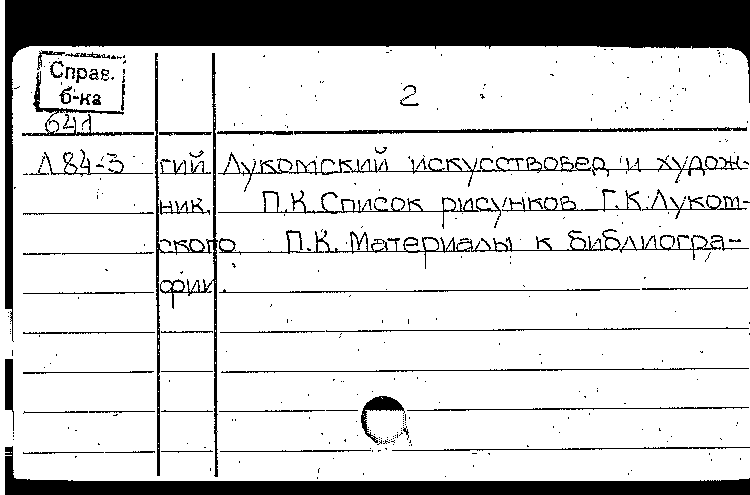 Справ.
б-ка
2
641
Л84-3 гий Лукомский искусствовед и худож-
ник. П.К. Список рисунков Г.К. Луком-
ского П.К. Материалы к библиогра-
фии.